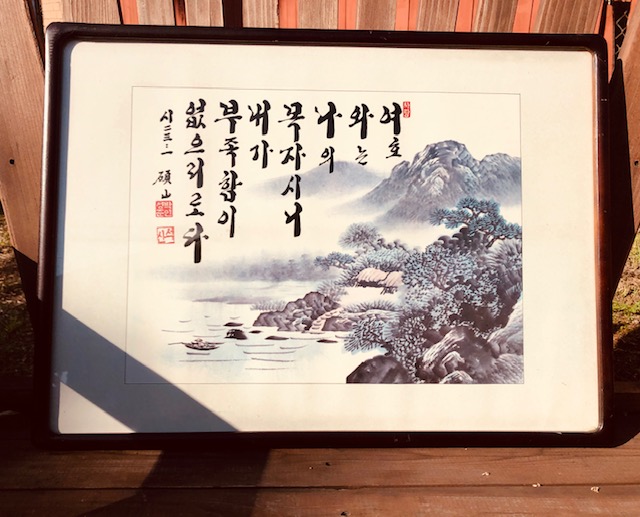 여호
와는
나의
목자시니
내가
부족함이
없으리로다
시二三:一
碩山